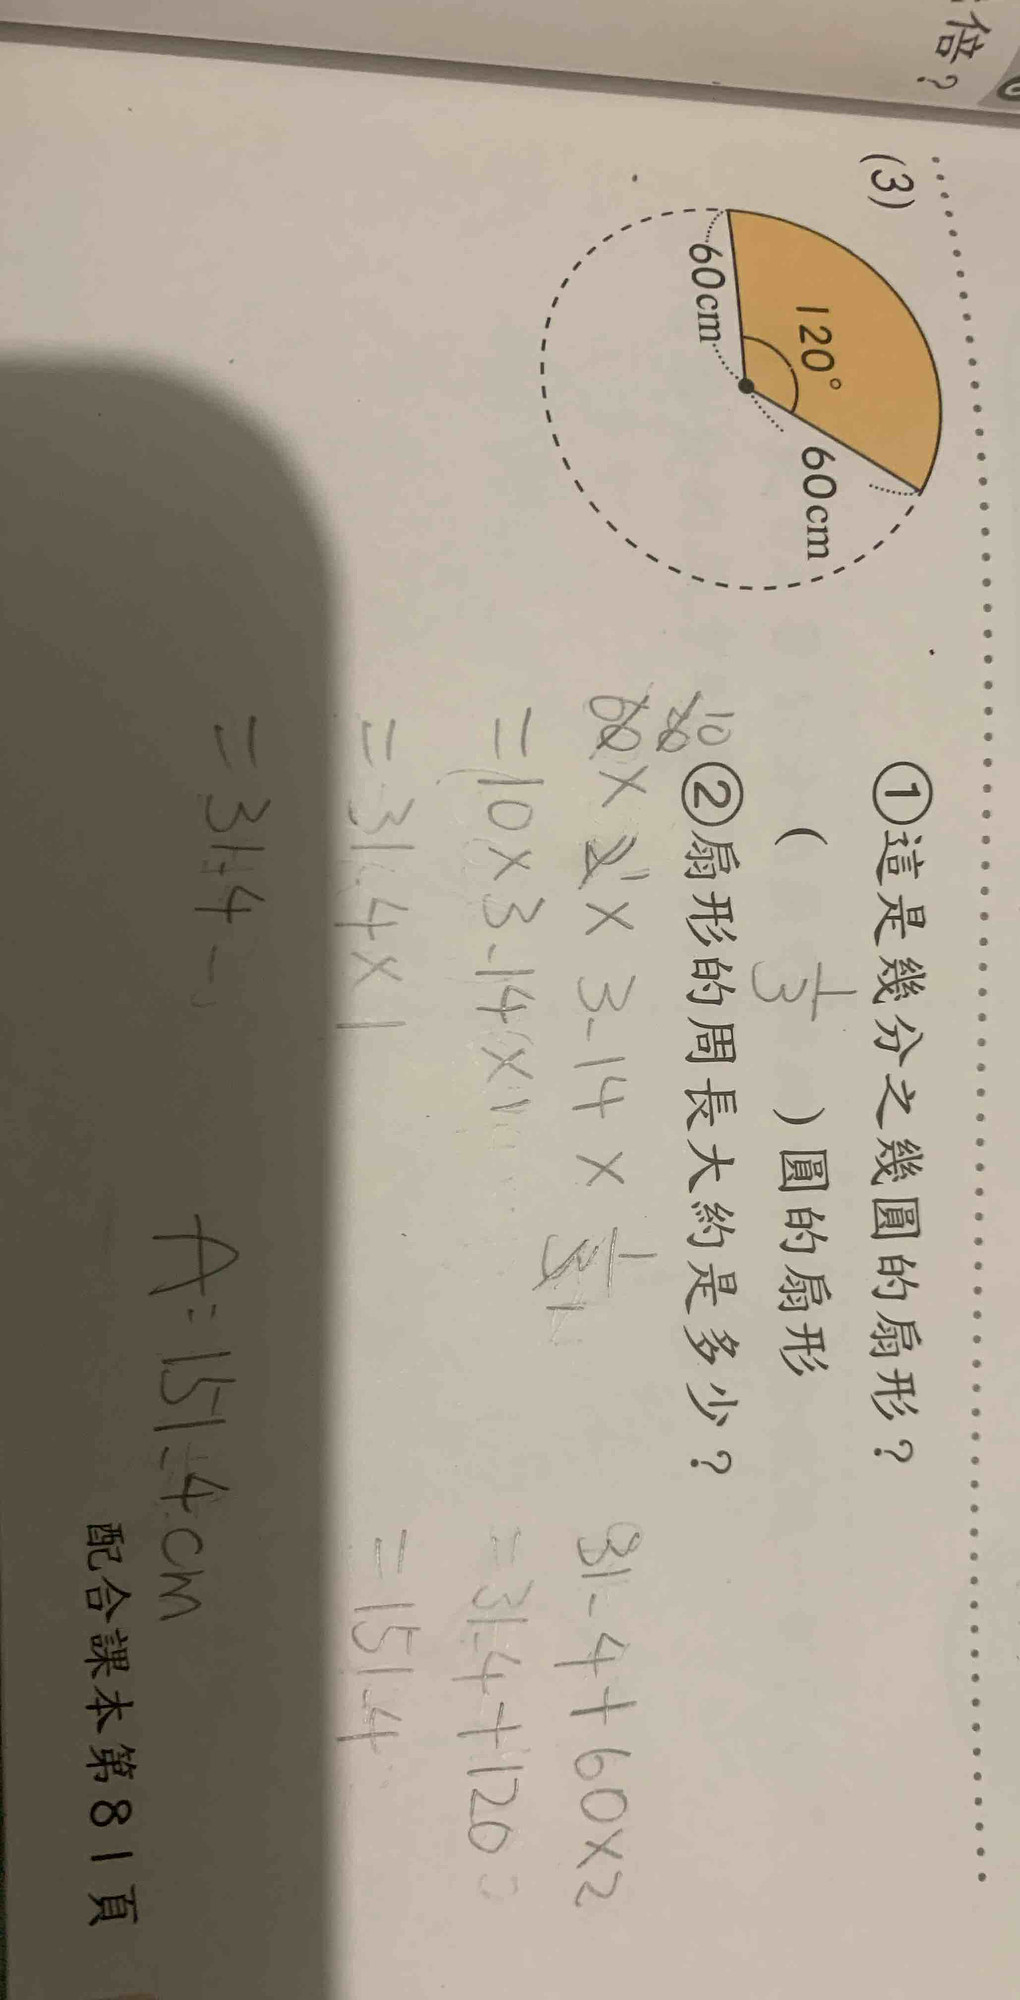 倍？
(3)
120°
60cm
60cm
①這是幾分之幾圓的扇形？
( 1/3 )圓的扇形
②扇形的周長大約是多少？
10
60×2×3.14×1/3
=10×3.14×1
=31.4×1
=31.4
31.4+60×2
=31.4+120
=151.4
A:151.4cm
配合課本第81頁